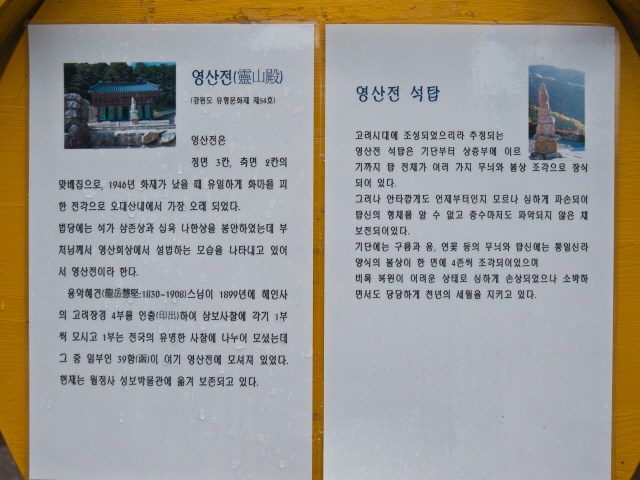 영산전(靈山殿)
(강원도 유형문화재 제54호)
영산전은
정면 3칸, 측면 2칸의
맞배집으로, 1946년 화재가 났을 때 유일하게 화마를 피
한 전각으로 오대산내에서 가장 오래 되었다.
법당에는 석가 삼존상과 십육 나한상을 봉안하였는데 부
처님께서 영산회상에서 설법하는 모습을 나타내고 있어
서 영산전이라 한다.
용악혜견(龍岳慧堅:1830~1908)스님이 1899년에 해인사
의 고려장경 4부를 인출(印出)하여 삼보사찰에 각기 1부
씩 모시고 1부는 전국의 유명한 사찰에 나누어 모셨는데
그 중 일부인 39함(函)이 여기 영산전에 모셔져 있었다.
현재는 월정사 성보박물관에 옮겨 보존되고 있다.
영산전 석탑
고려시대에 조성되었으리라 추정되는
영산전 석탑은 기단부터 상층부에 이르
기까지 탑 전체가 여러 가지 무늬와 불상 조각으로 장식
되어 있다.
그러나 안타깝게도 언제부터인지 모르나 심하게 파손되어
탑신의 형체를 알 수 없고 층수마저도 파악되지 않은 채
보전되어왔다.
기단에는 구름과 용, 연꽃 등의 무늬와 탑신에는 통일신라
양식의 불상이 한 면에 4존씩 조각되어있으며
비록 복원이 어려운 상태로 심하게 손상되었으나 소박하
면서도 당당하게 천년의 세월을 지키고 있다.